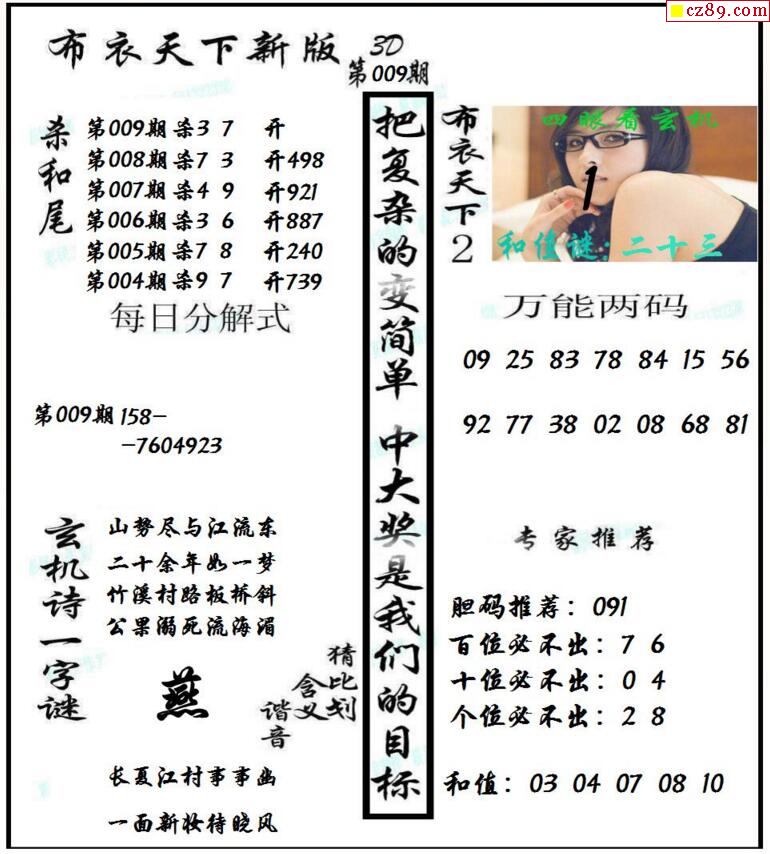 cz89.com
布衣天下新版
3D
第009期
杀和尾
第009期 杀3 7 开
第008期 杀7 3 开498
第007期 杀4 9 开921
第006期 杀3 6 开887
第005期 杀7 8 开240
第004期 杀9 7 开739
每日分解式
第009期 158-
-7604923
玄机诗一字谜
山势尽与江流东
二十余年如一梦
竹溪村路板桥斜
公果溺死流海湄
燕
猜比划
含义
谐音
长夏江村事事幽
一面新妆待晓风
把复杂的变简单 中大奖是我们的目标
布衣天下2
四眼看玄机
1
和值谜:二十三
万能两码
09 25 83 78 84 15 56
92 77 38 02 08 68 81
专家推荐
胆码推荐：091
百位必不出：7 6
十位必不出：0 4
个位必不出：2 8
和值：03 04 07 08 10